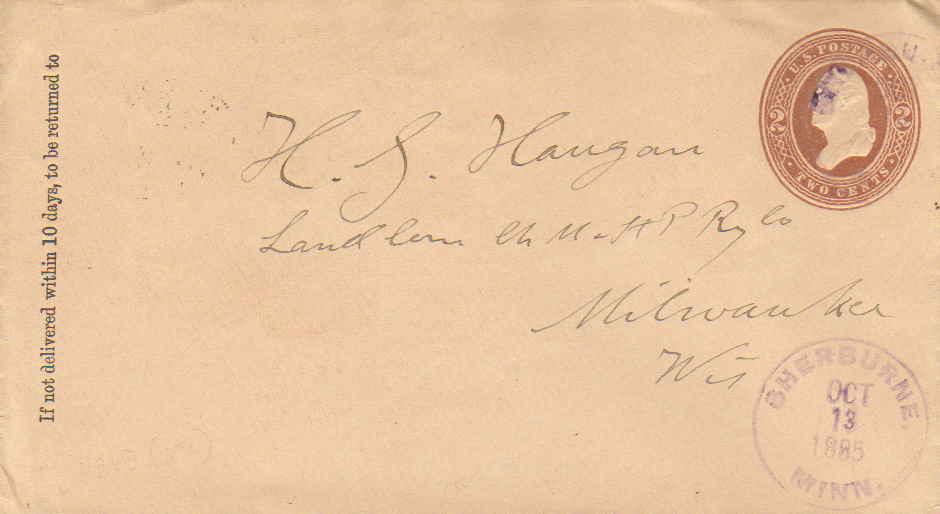 If not delivered within 10 days, to be returned to
U.S. POSTAGE
2 2
TWO CENTS
H. G. Haugan
Land Com Ch M & St P Ry Co
Milwaukee
Wis
SHERBURNE.
OCT
13
1885
MINN.